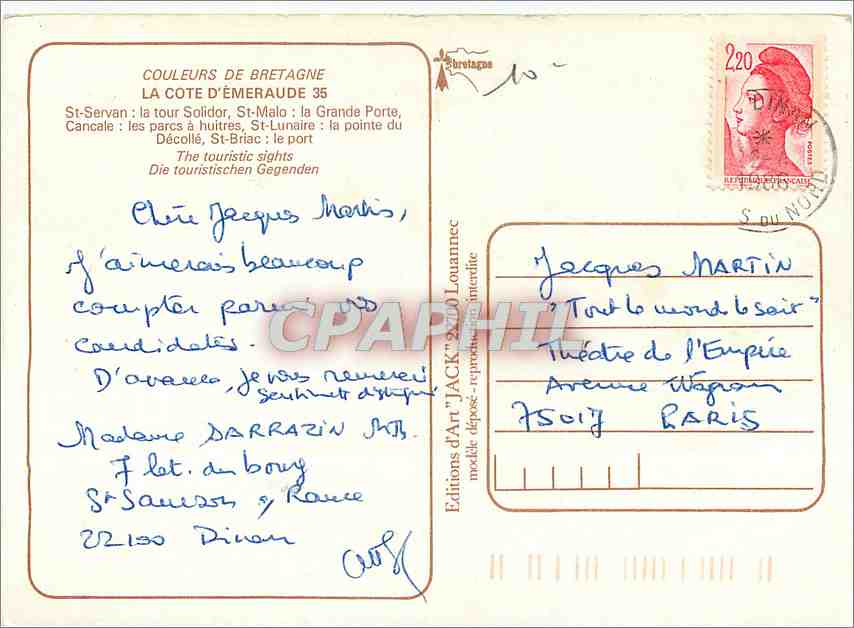 COULEURS DE BRETAGNE
LA COTE D'ÉMERAUDE 35
St-Servan : la tour Solidor, St-Malo : la Grande Porte,
Cancale : les parcs à huitres, St-Lunaire : la pointe du
Décollé, St-Briac : le port
The touristic sights
Die touristischen Gegenden
Chère Jacques Martin,
J'aimerais beaucoup
compter parmi vos
candidates.
D'avance, je vous remercie
sentiments distingués
Madame DARRAZIN MB.
7 lot. du bourg
St Samson s/ Rance
22100 Dinan
bretagne
10 -
Editions d'Art "JACK" 22700 Louannec
modèle déposé - reproduction interdite
2,20
POSTES
REPUBLIQUE FRANÇAISE
DINAN
S DU NORD
Jacques MARTIN
"Tout le monde le sait"
Théatre de l'Empire
Avenue Wagram
75017 PARIS
CPAPHIL